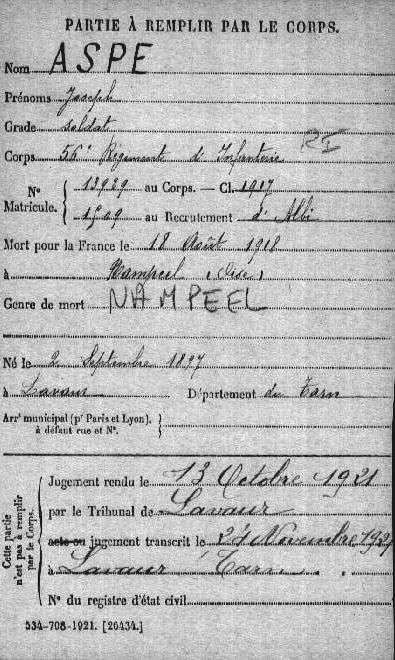 PARTIE À REMPLIR PAR LE CORPS.
Nom ASPE
Prénoms Joseph
Grade soldat
Corps 56e Régiment d'Infanterie RI
N° Matricule. { 13929 au Corps. — Cl. 1917
1509 au Recrutement d'Albi
Mort pour la France le 18 Août 1918
à Nampcel (Oise)
Genre de mort NAMPCEL
Né le 2 Septembre 1897
à Lavaur Département du Tarn
Arr' municipal (p' Paris et Lyon), }
à défaut rue et N°.
Cette partie n'est pas à remplir par le Corps.
Jugement rendu le 13 Octobre 1921
par le Tribunal de Lavaur
acte ou jugement transcrit le 24 Novembre 1921
à Lavaur Tarn
N° du registre d'état civil
534-708-1921. [26434.]